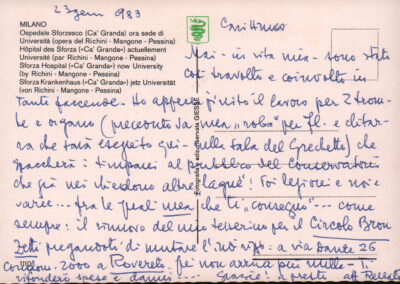 23 genn 983
MILANO
Ospedale Sforzesco (Ca' Granda) ora sede di
Università (opera del Richini - Mangone - Pessina)
Hôpital des Sforza (»Ca' Granda») actuellement
Université (par Richini - Mangone - Pessina)
Sforza Hospital («Ca' Granda») now University
(by Richini - Mangone - Pessina)
Sforza Krankenhaus («Ca' Granda») jetz Universität
(von Richini - Mangone - Pessina)
Carissimo
Mai - in vita mia - sono stato
così travolto e coinvolto in
tante faccende - Ho appena finito il lavoro per 2 trom-
be e organo (preceduto da una "roba" per fl. e chitar-
ra che sarà eseguito qui - sala del Grechetto) che
spaccherà i timpani al pubblico del Conservatorio
che già nei chiedono altre Poi lezioni e noie
varie... fra le quali una che ti "consegno"... come
sempre: il rinnovo del mio tesserino per il Circolo Bron
zetti pregandoti di mutare l'indirizzo: a via Dante 26
2000 a Rovereto. fei non arriva più nulla - Ti
rifonderò spese e danni... Grazie! A presto aff